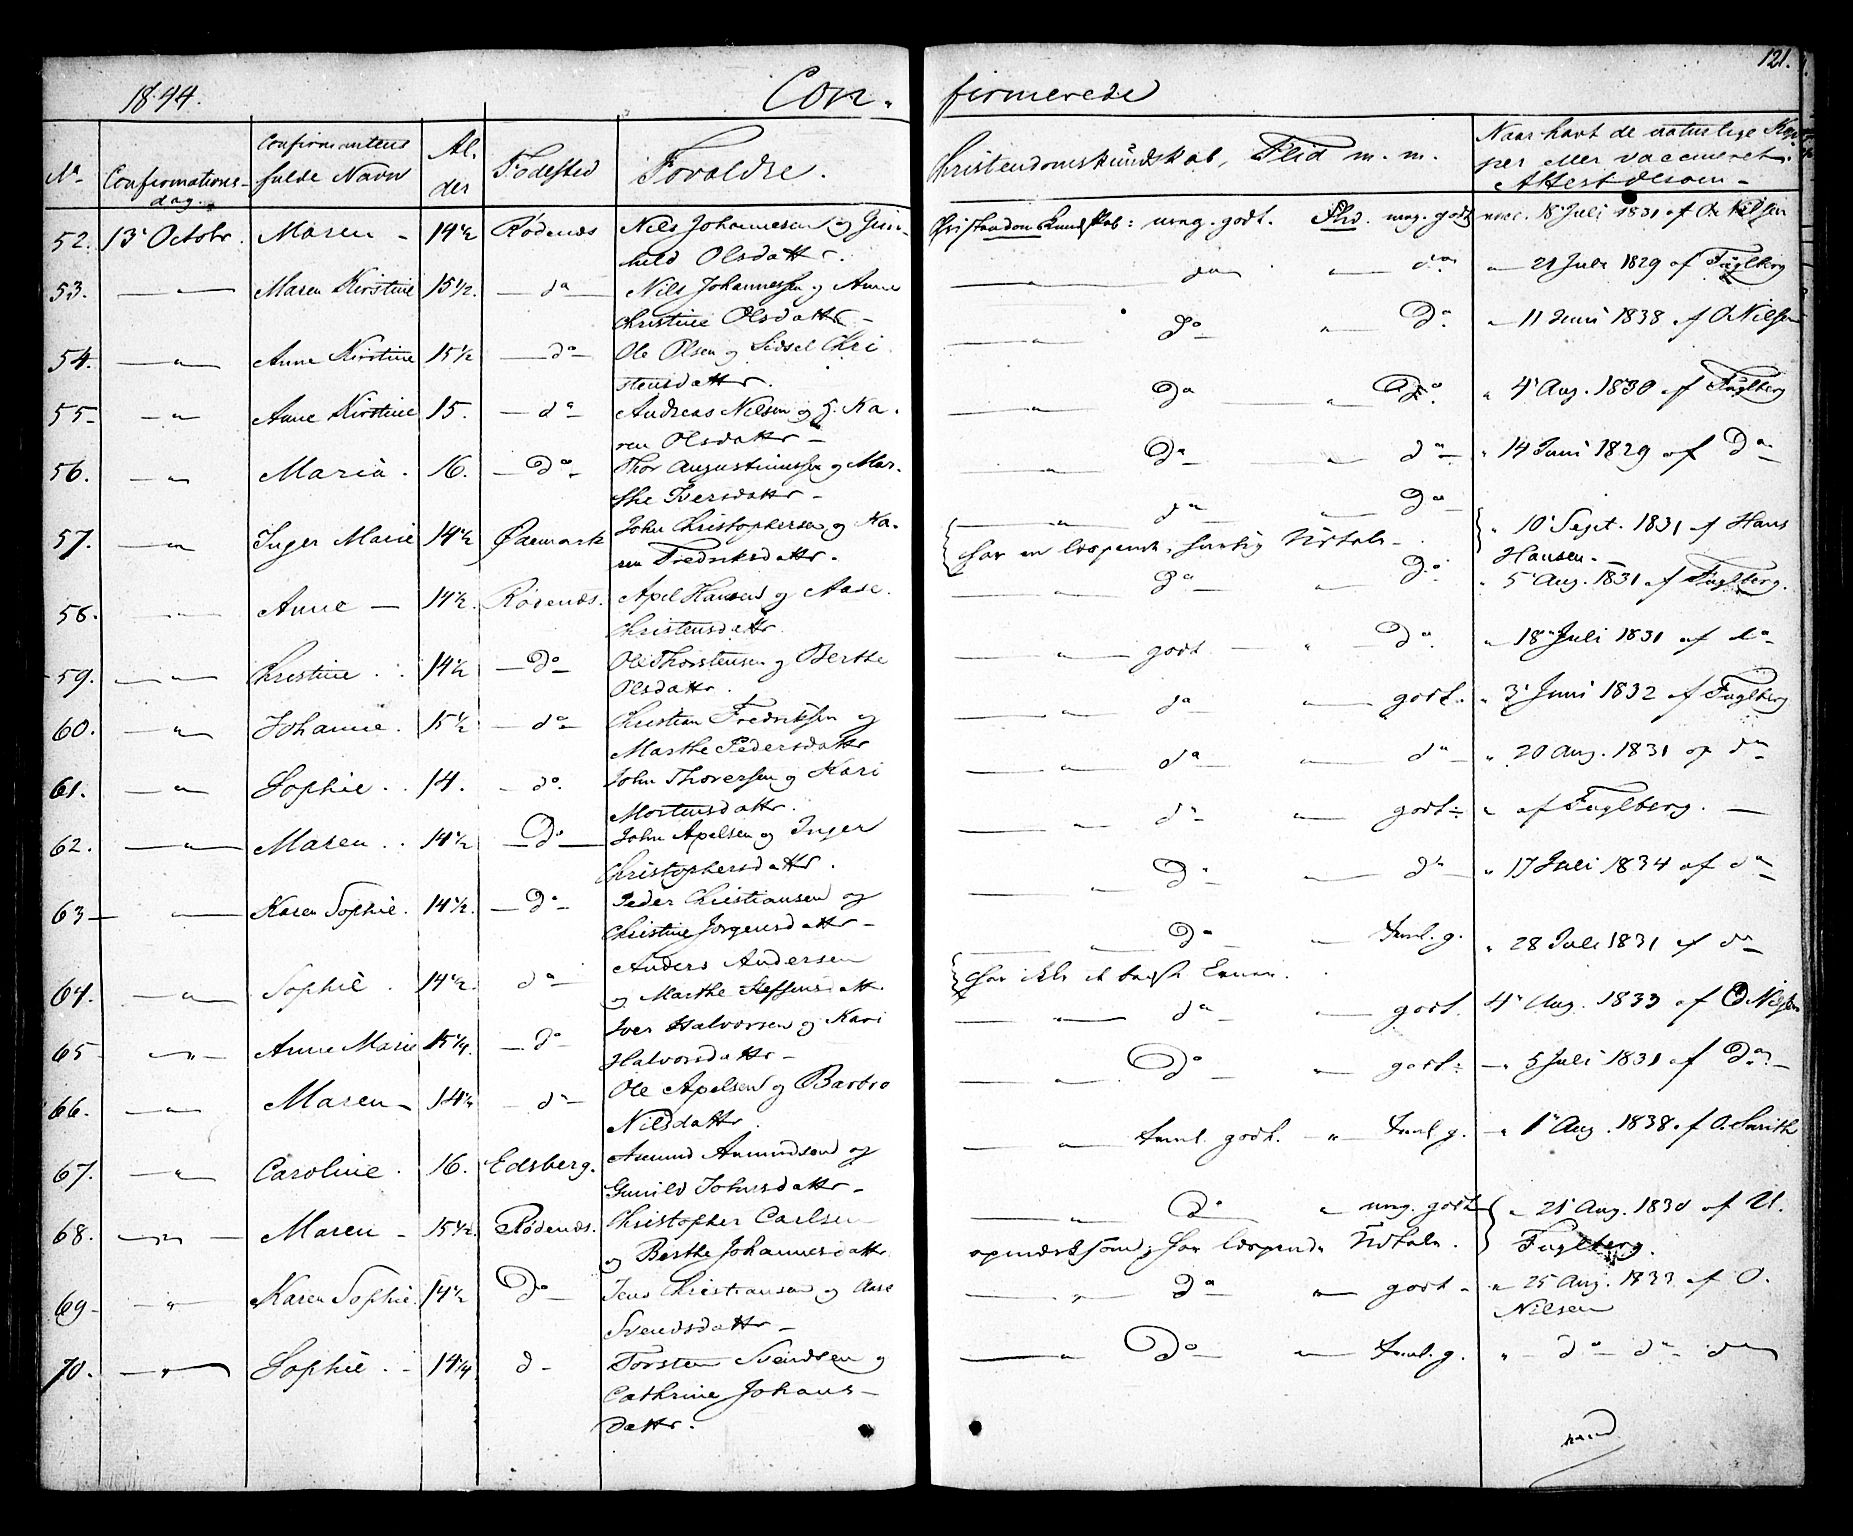 121.
1844. Con- firmerede
No Confirmations-dag. Confirmantens fulde Navn Al-der Fødested Forældre. Christendomskundskab, Flid m. m. Naar havt de naturlige Kop-per eller vaccineret. Attest desom -
52. 13 Octobr. Maren - 14½ Rødenæs Nils Johannesen og Gun- Christendomskundskab: meg. godt. Flid. meg. godt vacc. 18 Juli 1831 af O. Nilsen
hild Olsdattr.
53. — " — Maren Kirstine 15½. — do — Nils Johannessen og Anne — do — " — do. " 21 Juli 1829 af Fuglberg
Christine Olsdattr. -
54. — " — Anne Kirstine 15½ — do — Ole Olsen og Sidsel Chri — " — do — " — Do. " 11 Juni 1838 af O Nilsen
stensdattr.
55 — " — Anne Kirstine 15. — do — Andreas Nilsen og H. Ka- — " — Do — " — Do. " 4 Aug. 1830 af Fuglberg
ren Olsdattr -
56. — " — Maria. 16. — Do — Thor Augustinussen og Mar- — " — Do — " — do — " 14 Juni 1829 af Do
the Iversdattr -
57. — " — Inger Marie 14½ Øemark John Christophersen og Ka- — " — do — " — Do { " 10 Sept. 1831 af Hans
ren Fredriksdattr. { har en læspende, hurtig Udtale - Hansen. -
58. — " — Anne — 14½. Rødenæs. Apel Hansen og Aase — " — Do — " — Do. " 5 Aug. 1831 af Fuglberg.
Christensdattr.
59. — " — Christine. 14½ — Do — Ole Thorstensen og Berthe — " — godt. — " — Do. " 18 Juli 1831 af do
Olsdattr.
60. — " — Johanne. 15½ — do — Christian Fredriksen og — " — do — " — godt. " 3 Juni 1832 af Fuglberg
Marthe Pedersdattr
61. — " — Sophie. 14. — do. John Thoresen og Kari — " — do — " — do — " 20 Aug. 1831 af do
Mortensdattr.
62. — " — Maren. 14½ — Do — John Apelsen og Inger — " — do — " — godt. " af Fuglberg. —
Christophersdattr.
63 — " — Karen Sophie. 14½. — Do — Peder Christiansen og — " — Do — " — do — " 17 Juli 1834 af do
Christine Jørgensdattr -
64. — " — Sophie. 14½. do — Anders Andersen — " — Do — " — Teml. g. " 28 Juli 1831 af do
og Marthe Steffensdatt. { har ikke et  Evner.
65 — " — Anne Marie 15¼. — do — Iver Halvorsen og Kari — " — do — " — godt. 4 Aug. 1833 af O Nilsen
Halvorsdattr -
66. — " — Maren - 14½ — do — Ole Apelsen og Barbro — " — Do — " — godt. — " 5 Juli 1831 af Do. —
Nilsdattr.
67. — " — Caroline. 16. Edsberg. Amund Amundsen og — " — Teml. godt. — " — Teml g. — " 1 Aug. 1838 af O. Smith
Gunild Johnsdattr -
68. — " — Maren - 15½. Rødenæs. Christopher Carlsen — " — Do — " meg. godt { " 21 Aug. 1830 af U.
og Berthe Johannesdattr opmærksom; har læspende Udtale. Fuglberg.
69 — " — Karen Sophie. 14½ Do — Jens Christiansen og Aase — " — Do — " — godt — " 25 Aug. 1833 af O.
Svendsdattr - Nilsen
70. — " — Sophie. — 14¼ d — Torsten Svendsen og — " — Do — " — Teml. g. " — do — do — do
Cathrine Johans-
dattr.